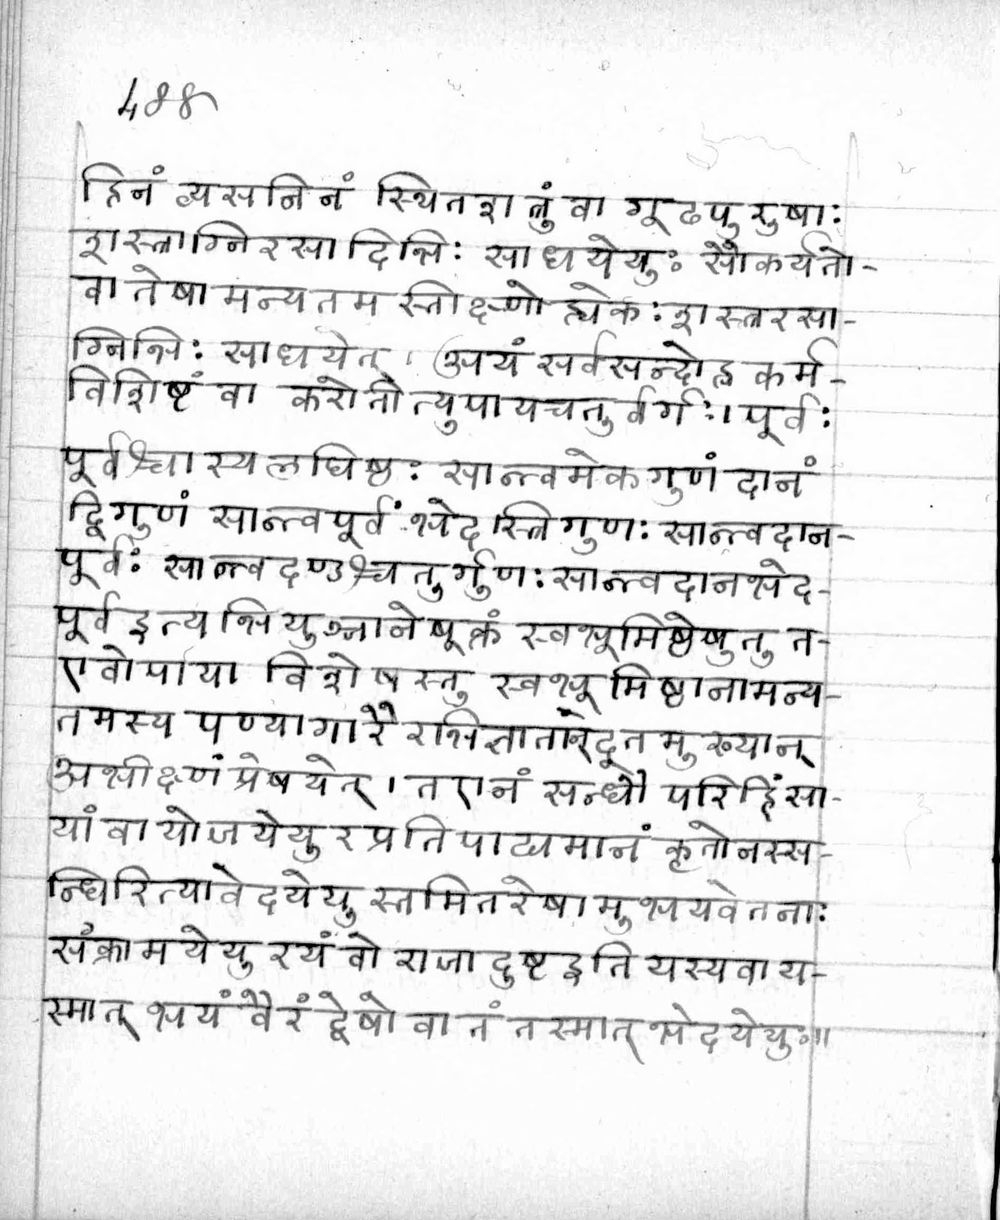 488
हिनं व्यसनिनं स्थितशत्रुं वा गूढपुरुषाः
शस्त्राग्निरसादिभिः साधयेयुः सौकर्यतो-
वा तेषामन्यतम स्तीक्ष्णो ह्येकः शस्त्ररसा-
ग्निभिः साधयेत् । अयं सर्वसन्दोह कर्म-
विशिष्टं वा करोतीत्युपायचतुर्वर्गः। पूर्वः
पूर्वश्चास्य लघिष्ठः सान्त्वमेकगुणं दानं
द्विगुणं सान्त्वपूर्वं भेदस्त्रिगुणः सान्त्वदान-
पूर्वः सान्त्व दण्डश्चतुर्गुणः सान्त्वदानभेद-
पूर्व इत्यभियुञ्जानेषूक्तं स्वभूमिष्ठेषु तु त-
एवोपाया विशेषस्तु स्वभूमिष्ठानामन्य-
तमस्य पण्यागारैरभिज्ञातान् दूतमुख्यान्
अभीक्ष्णं प्रेषयेत् । त एनं सन्धौ परिहिंसा-
यां वा योजयेयु रप्रतिपाद्यमानं कृतोनस्स-
न्धिरित्यावेदयेयु स्तमितरेषामुभयवेतनाः
संक्रामयेयु रयं वो राजा दुष्ट इति यस्य वा य-
स्मात् भयं वैरं द्वेषो वा तं तस्मात् भेदयेयुः॥